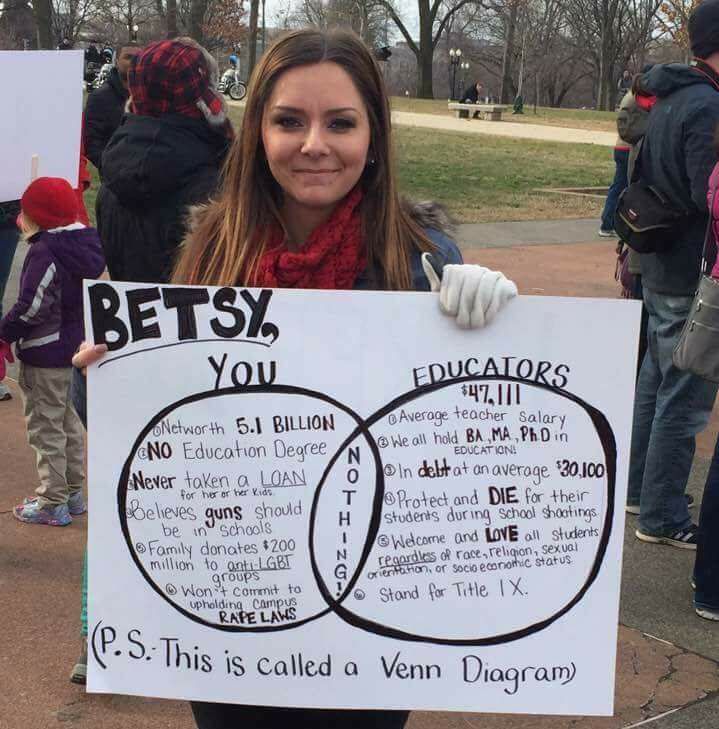 BETSY,
YOU
① Networth 5.1 BILLION
② NO Education Degree
③ Never taken a LOAN
for her or her kids.
④ Believes guns should
be in schools
⑤ Family donates $200
million to anti-LGBT
groups
⑥ Won't commit to
upholding campus
RAPE LAWS
NOTHING!
EDUCATORS
$47,111
① Average teacher salary
② We all hold BA, MA, Ph.D in
EDUCATION!
③ In debt at an average $30,100
④ Protect and DIE for their
students during school shootings
⑤ Welcome and LOVE all students
regardless of race, religion, sexual
orientation, or socioeconomic status
⑥ Stand for Title IX.
(P.S. - This is called a Venn Diagram)